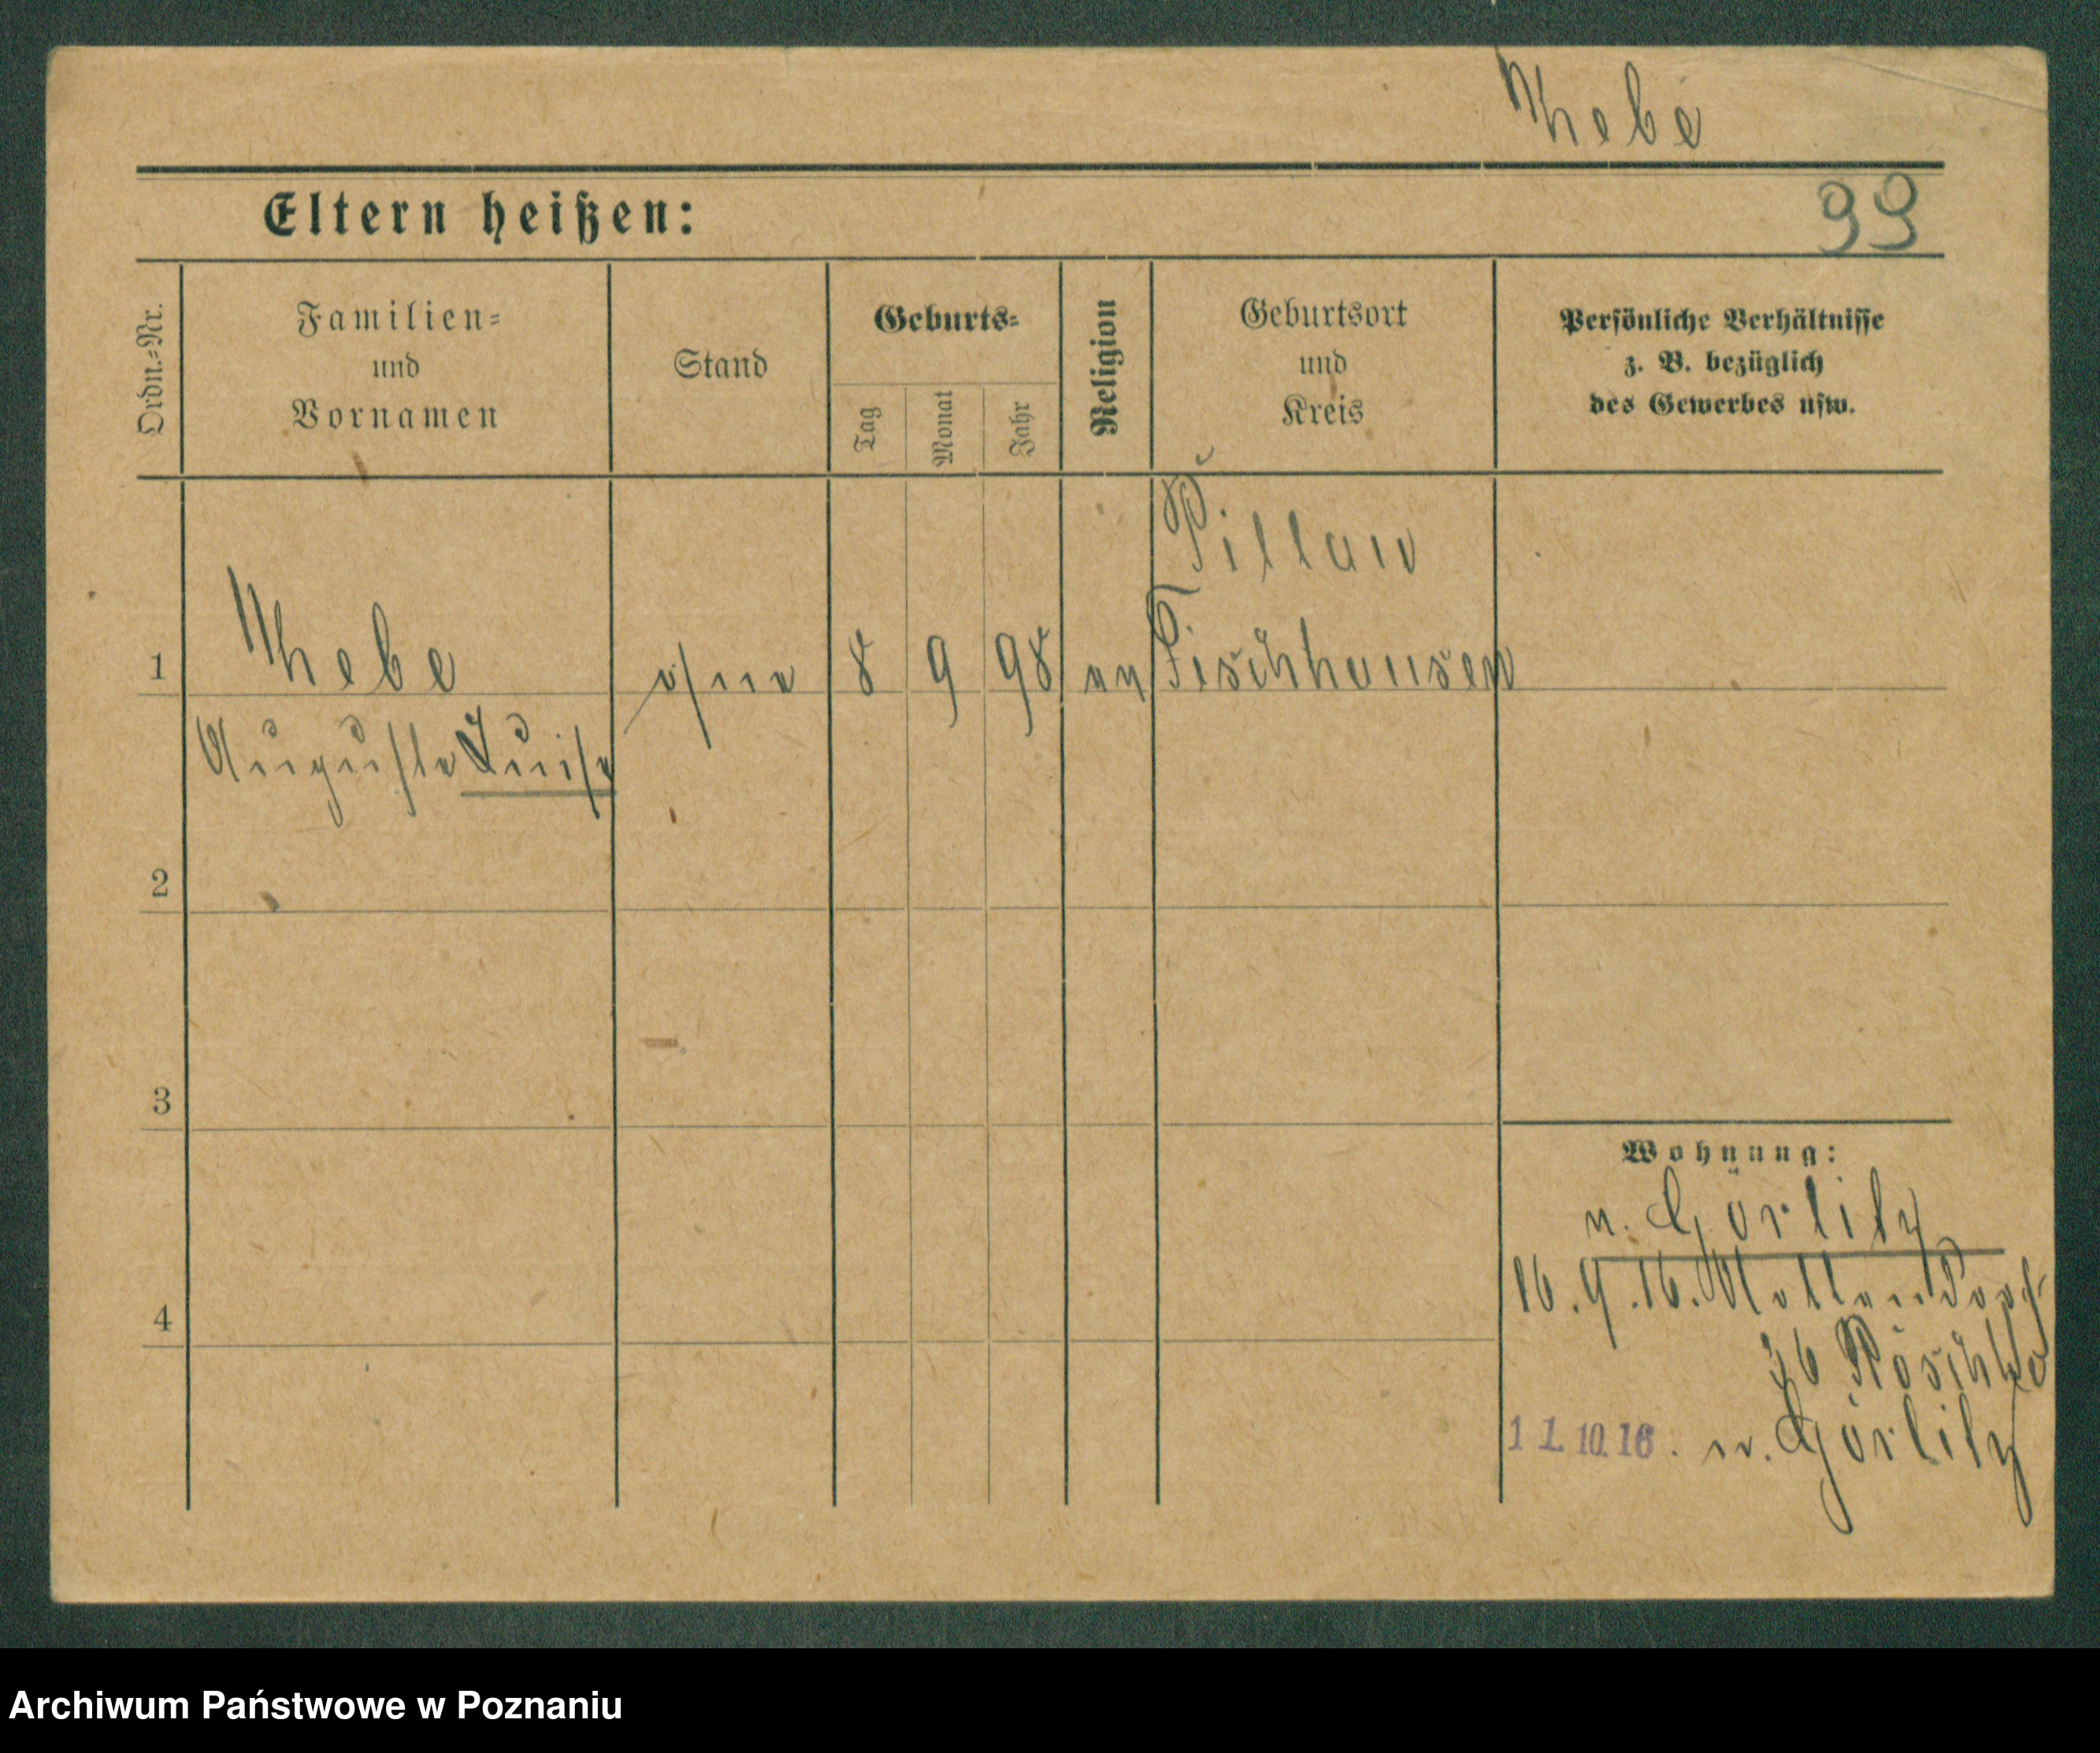 Thebe
99
Eltern heißen:
Ordn.=Nr.
Familien= und Vornamen
Stand
Geburts=
Tag
Monat
Jahr
Religion
Geburtsort und Kreis
Persönliche Verhältnisse
z. B. bezüglich
des Gewerbes usw.
Pillau
1 Thebe ohne 8 9 98 ev Fischhausen
Auguste Luise
2
3
4
Wohnung:
v. Görlitz
16.9.16. Mollendorf
36
11.10.16. n. Görlitz
Archiwum Państwowe w Poznaniu